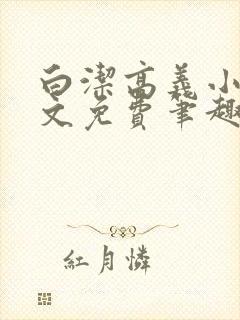 白潔高義小
文免費筆趣
紅月憐